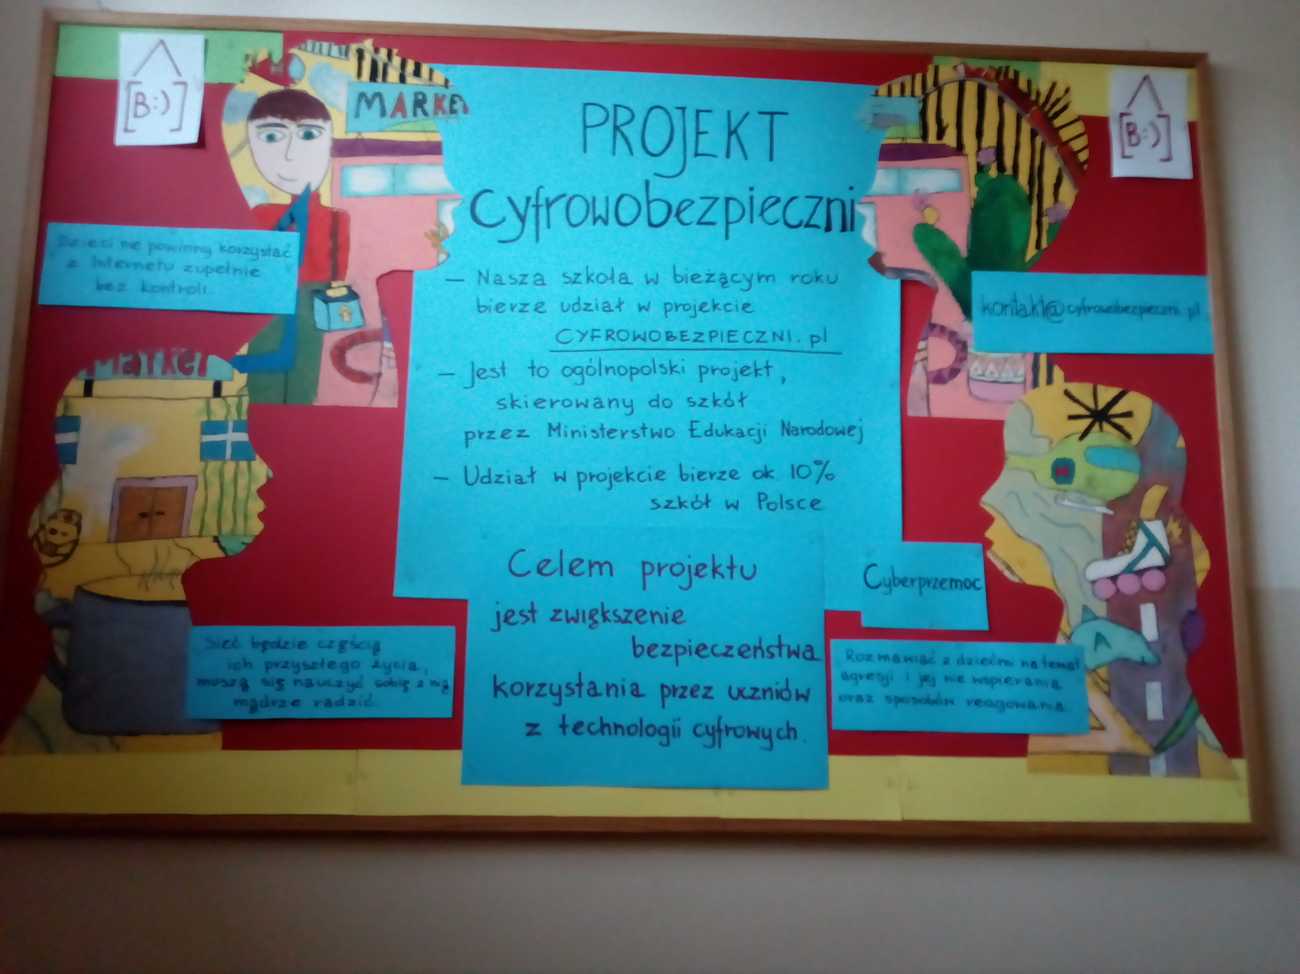 [B:)]
MARKET
PROJEKT
Cyfrowobezpieczni
[B:)]
Dzieci nie powinny korzystać
z Internetu zupełnie
bez kontroli.
— Nasza szkoła w bieżącym roku
bierze udział w projekcie
CYFROWOBEZPIECZNI.pl
— Jest to ogólnopolski projekt,
skierowany do szkół
przez Ministerstwo Edukacji Narodowej
— Udział w projekcie bierze ok 10%
szkół w Polsce
kontakt@cyfrowobezpieczni.pl
Market
Celem projektu
jest zwiększenie
bezpieczeństwa
korzystania przez uczniów
z technologii cyfrowych.
Cyberprzemoc
Sieć będzie częścią
ich przyszłego życia,
muszą się nauczyć sobie z nią
mądrze radzić.
Rozmawiać z dziećmi na temat
agresji i jej nie wspierania
oraz sposobów reagowania.
A